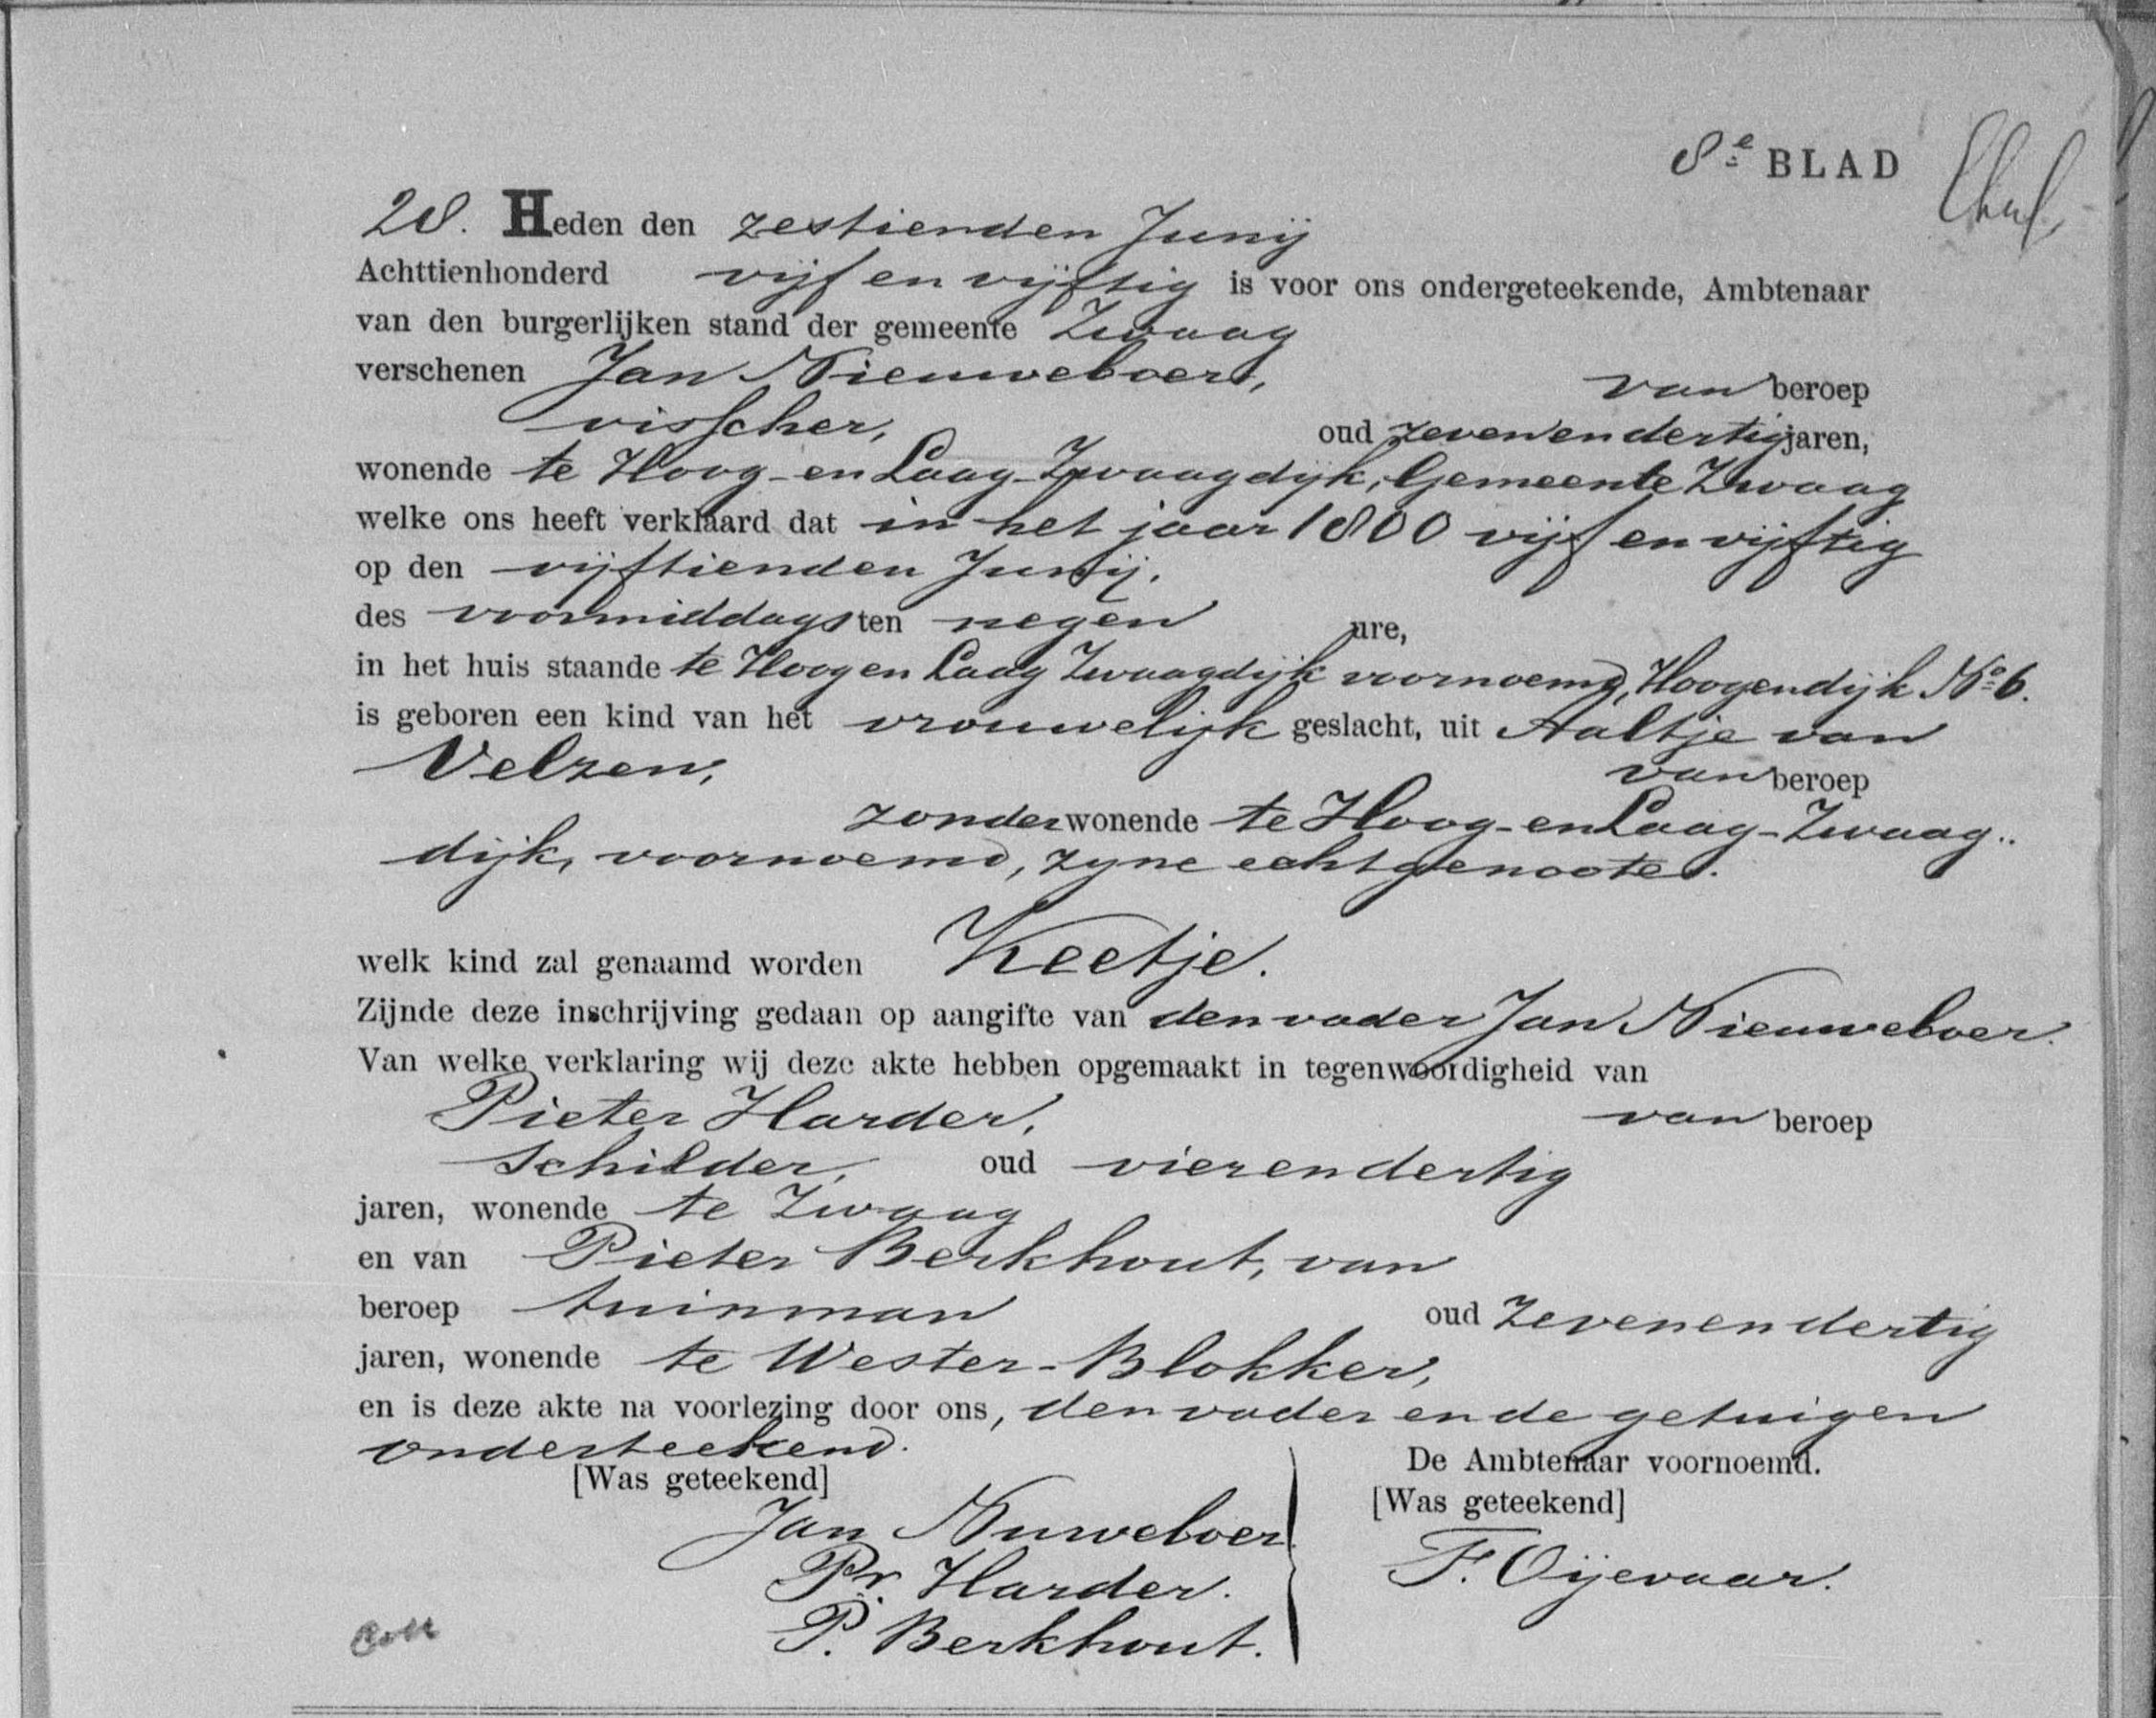 8e BLAD
28. Heden den zestienden Junij
Achttienhonderd vijf en vijftig is voor ons ondergeteekende, Ambtenaar
van den burgerlijken stand der gemeente Zwaag
verschenen Jan Nieuweboer, van beroep
visscher, oud zevenendertig jaren,
wonende te Hoog-en Laag-Zwaagdijk, Gemeente Zwaag
welke ons heeft verklaard dat in het jaar 1800 vijf en vijftig
op den vijftienden Junij,
des voormiddags ten negen ure,
in het huis staande te Hoog en Laag Zwaagdijk voornoemd, Hoogendijk No 6.
is geboren een kind van het vrouwelijk geslacht, uit Aaltje van
Velzen, van beroep
zonder wonende te Hoog-en Laag-Zwaag..
dijk, voornoemd, zyne echtgenoote.
welk kind zal genaamd worden Keetje.
Zijnde deze inschrijving gedaan op aangifte van den vader Jan Nieuweboer.
Van welke verklaring wij deze akte hebben opgemaakt in tegenwoordigheid van
Pieter Harder, van beroep
Schilder, oud vierendertig
jaren, wonende te Zwaag
en van Pieter Berkhout, van
beroep tuinman oud Zevenendertig
jaren, wonende te Wester-Blokker,
en is deze akte na voorlezing door ons, den vader en de getuigen
onderteekend.
De Ambtenaar voornoemd.
[Was geteekend]
[Was geteekend]
Jan Nuweboer
Pr. Harder.
F. Oijevaar.
P. Berkhout.